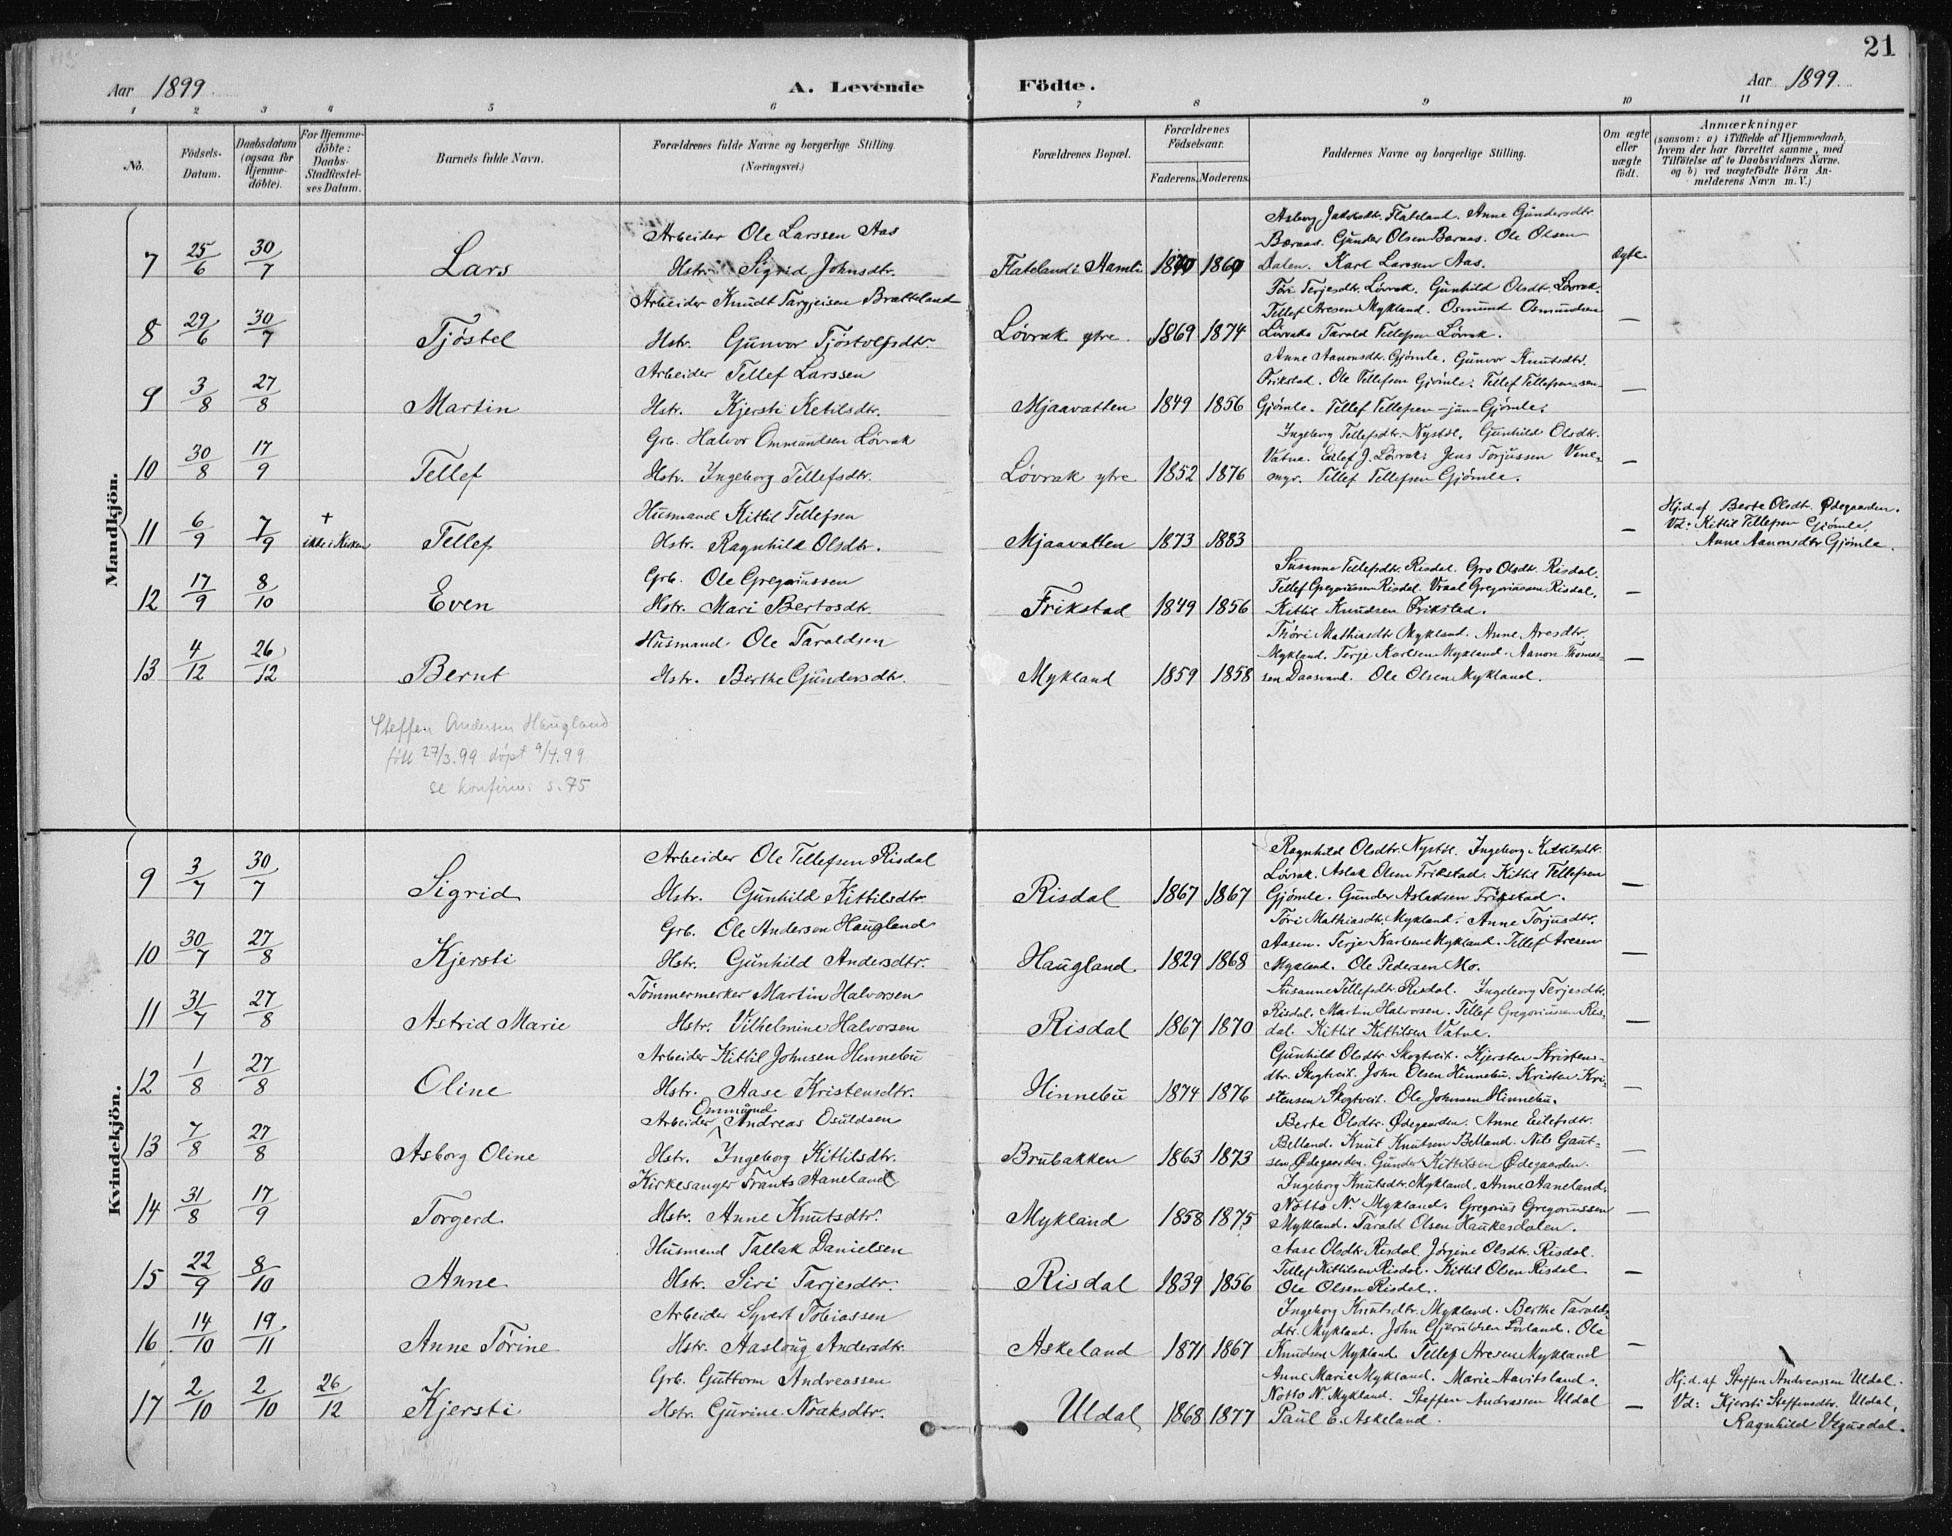 21
Aar 1899.
A. Levende Födte.
Aar 1899.
1 2 3 4 5 6 7 8 9 10 11
No.
Födsels-Datum.
Daabsdatum (ogsaa for Hjemme-döbte).
For Hjemme-döbte: Daabs-Stadfæstel-ses Datum.
Barnets fulde Navn.
Forældrenes fulde Navne og borgerlige Stilling. (Næringsvei.)
Forældrenes Bopæl.
Forældrenes Födselsaar.
Faderens. Moderens.
Faddernes Navne og borgerlige Stilling.
Om ægte eller uægte födt.
Anmærkninger
(saasom: a) i Tilfælde af Hjemmedaab, hvem der har forrettet samme, med Tilföielse af to Daabsvidners Navne, og b) ved uægtefödte Börn An-melderens Navn m. V.)
Mandkjön.
7 25/6 30/7 Lars
Arbeider Ole Larssen Aas
Hstr. Sigrid Johnsdtr.
Flateland i Aamli 1870 1860
Asborg Jakobsdtr. Flateland. Anne Gundersdtr.
Barnas. Gunder Olsen Barnas. Ole Olsen
Dalen. Karl Larssen Aas.
Ægte
8 29/6 30/7 Tjøstel
Arbeider Knudt Targjeisen Bratteland
Hstr. Gunvor Tjöstolfsdtr.
Løvrak ytre. 1869 1874
Töri Terjesdtr. Løvrak. Gunhild Olsdtr. Løvrak.
Tellef Aresen Mykland. Osmund Osmundsen
Løvrak. Tarald Tellefsen Løvrak.
—
9 3/8 27/8 Martin
Arbeider Tellef Larssen
Hstr. Kjersti Ketilsdtr.
Mjaavatten 1849 1856
Anne Aanonsdtr. Gjømle. Gunvor Knutsdtr.
Frikstad. Ole Tellefsen Gjømle. Tellef Tellefsen-sen-
Gjømle. Tellef Tellefsen-jun-Gjømle.
—
10 30/8 17/9 Tellef
Grb. Halvor Ommundsen Løvrak
Hstr. Ingeborg Tellefsdtr.
Løvrak ytre 1852 1876
Ingeborg Tellefsdtr. Nystøl. Gunhild Olsdtr.
Vatne. Eilef J. Løvrak. Jens Torjussen Vine-
myr. Tellef Tellefsen Gjømle.
—
11 6/9 7/9 + ikke i Kirken Tellef
Husmand Kittil Tellefsen
Hstr. Ragnhild Olsdtr.
Mjaavatten 1873 1883
—
Hj.d. af Berte Olsdt. Ødegaarden.
Vd: Kittil Tellefsen Gjømle,
Anne Aanonsdtr Gjømle.
12 17/9 8/10 Even
Grb. Ole Gregoriussen
Hstr. Mari Bertosdtr.
Frikstad 1849 1856
Susanne Tellefsdtr. Risdal. Gro Olsdtr. Risdal.
Tellef Gregoriussen Risdal. Vraal Gregoriussen Risdal.
Kittil Knudsen Frikstad.
—
13 4/12 26/12 Bernt
Husmand Ole Taraldsen
Hstr. Berthe Gundersdtr.
Mykland 1859 1858
Thöri Mathiasdtr Mykland. Anne Aresdtr.
Mykland. Terje Karlsen Mykland. Aanon Thomas-
sen Daasvand. Ole Olsen Mykland.
—
Steffen Andersen Haugland
født 27/3.99 døpt 9/4.99
se konfirm. s.75
Kvindekjön.
9 3/7 30/7 Sigrid
Arbeider Ole Tellefsen Risdal
Hstr. Gunhild Kittilsdtr.
Risdal 1867 1867
Ragnhild Olsdtr. Nystøl. Ingeborg Kittilsdtr.
Løvrak. Aslak Olsen Frikstad. Kittil Tellefsen
Gjømle. Gunder Aslaksen Frikstad.
—
10 30/7 27/8 Kjersti
Grb. Ole Andersen Haugland
Hstr. Gunhild Andersdtr.
Haugland 1829 1868
Töri Mathiasdtr. Mykland. Anne Torjusdtr.
Aasen. Terje Karlsen Mykland. Tellef Aresen
Mykland. Ole Pedersen Mo.
—
11 31/7 27/8 Astrid Marie
Tømmermerker Martin Halvorsen
Hstr. Vilhelmine Halvorsen
Risdal 1867 1870
Susanne Tellefsdtr. Risdal. Ingeborg Terjesdtr.
Risdal. Martin Halvorsen. Tellef Gregoriussen Ris-
dal. Kittil Kittilsen Vatne.
—
12 1/8 27/8 Oline
Arbeider Kittil Johnsen Hinnebu
Hstr. Aase Kristensdtr.
Hinnebu 1874 1876
Gunhild Olsdtr. Skogtveit. Kjersten Kristens-
dtr. Skogtveit. John Olsen Hinnebu. Kristen Kri-
stensen Skogtveit. Ole Johnsen Hinnebu.
—
13 7/8 27/8 Asborg Oline
Ommund
Arbeider Andreas Osuldsen
Hstr. Ingeborg Kittilsdtr.
Brubakken 1863 1873
Berte Olsdtr. Ødegaarden. Anne Eilefsdtr.
Belland. Knut Knutsen Belland. Nils Gaut-
sen Ødegaarden. Gunder Kittilsen Ødegaarden.
—
14 31/8 17/9 Torgerd
Kirkesanger Frants Aaneland
Hstr. Anne Knutsdtr.
Mykland 1858 1875
Ingeborg Knutsdtr. Mykland. Anne Aaneland.
Notto N. Mykland. Gregorius Gregoriussen
Mykland. Tarald Olsen Haukesdalen.
—
15 22/9 8/10 Anne
Husmand Tallak Danielsen
Hstr. Siri Tarjesdtr.
Risdal 1839 1856
Aase Olsdtr. Risdal. Jørgine Olsdtr. Risdal.
Tellef Kittilsen Risdal. Kittil Olsen Risdal
Ole Olsen Risdal.
—
16 14/10 19/11 Anne Tørine
Arbeider Syvert Tobiassen
Hstr. Aaslaug Andersdtr.
Askeland 1871 1867
Ingeborg Knutsdtr. Mykland. Berthe Taralds-
dtr. Mykland. John Gjeruldsen Lovland. Ole
Knudsen Mykland Tellef Aresen Mykland
—
17 2/10 2/10 26/12 Kjersti
Grb. Guttorm Andreassen
Hstr. Gurine Noaksdtr.
Uldal 1868 1877
Anne Marie Mykland. Marie Haavitsland.
Notto N. Mykland. Steffen Andreassen Uldal
Paul E. Askeland.
—
Hj.d. af Steffen Andreassen Uldal.
Vd: Kjersti Steffensdtr. Uldal,
Ragnhild Vegusdal.